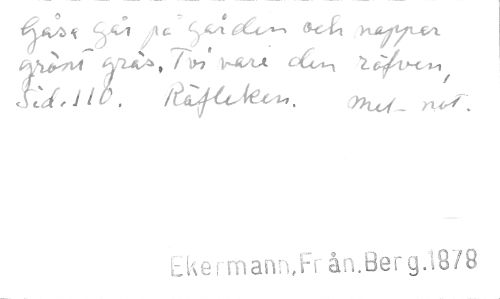 Gåsa går på gården och napper
grönt gräs. Tvi vare den räfven,
Sid. 110. Räfleken. Med not.
Ekermann, Från. Berg. 1878